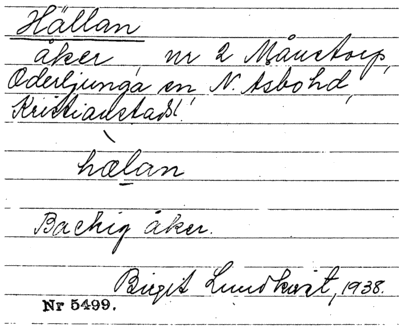 Hällan
åker nr 2 Månstorp,
Oderljunga sn, N. Åsbohd,
Kristianstads l.
hælan
Backig åker.
Birgit Lundkvist, 1938.
Nr 5499.